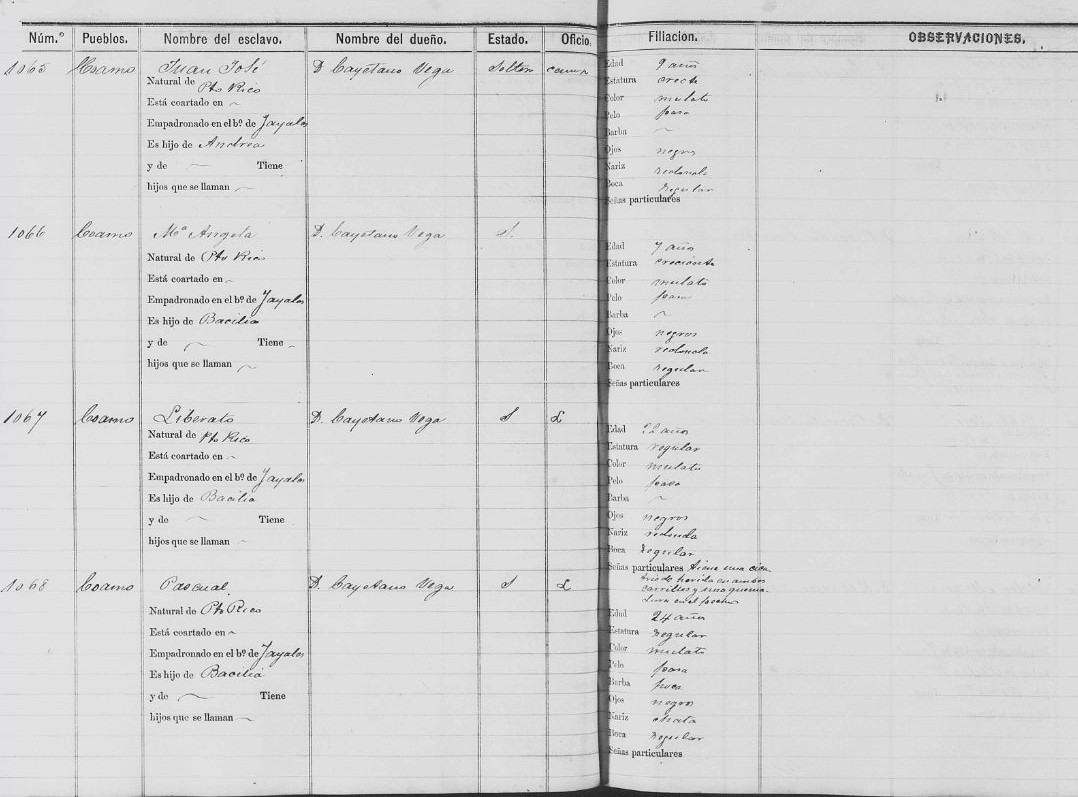 Núm.º Pueblos. Nombre del esclavo. Nombre del dueño. Estado. Oficio, Filiacion. OBSERVACIONES.
1065 Coamo Juan José D Cayetano Vega Solter
Natural de Pto Rico
Está coartado en ~
Empadronado en el bº de Jayales
Es hijo de Andrea
y de ~ Tiene
hijos que se llaman ~
Edad 9 años
Estatura crecte
Color mulato
Pelo pasa
Barba ~
Ojos negros
Nariz redonda
Boca regular
Señas particulares
1066 Coamo Mª Angela D. Cayetano Vega S.
Natural de Pto Rico
Está coartado en ~
Empadronado en el bº de Jayales
Es hijo de Bacilia
y de ~ Tiene ~
hijos que se llaman ~
Edad 7 años
Estatura creciente
Color mulato
Pelo pasa
Barba ~
Ojos negros
Nariz redonda
Boca regular
Señas particulares
1067 Coamo Liberato D. Cayetano Vega S L
Natural de Pto Rico
Está coartado en ~
Empadronado en el bº de Jayales
Es hijo de Bacilia
y de ~ Tiene
hijos que se llaman ~
Edad 22 años
Estatura regular
Color mulato
Pelo pasa
Barba ~
Ojos negros
Nariz redonda
Boca regular
Señas particulares tiene una cica
triz de herida en ambos
carrillos y una quema
dura en el
1068 Coamo Pascual. D. Cayetano Vega S L
Natural de Pto Rico
Está coartado en ~
Empadronado en el bº de Jayales
Es hijo de Bacilia
y de ~ Tiene
hijos que se llaman ~
Edad 24 años
Estatura regular
Color mulato
Pelo pasa
Barba poca
Ojos negros
Nariz chata
Boca regular
Señas particulares